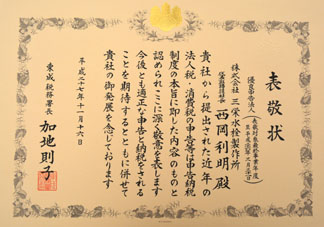 表敬状
優良申告法人
株式会社 三栄水栓製作所
西岡利明 殿
貴社から提出された近年の
法人税・消費税の申告等は申告納税
制度の本旨に即した内容のものと
認められここに深く敬意を表します
今後とも適正な申告と納税をされる
ことを期待するとともに併せて
貴社の御発展を念じております
平成二十七年十一月十六日
東成税務署長
加地則子